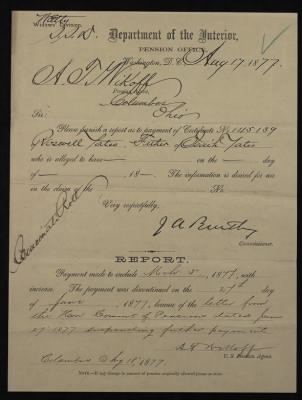 Widows' Division.
Department of the Interior,
PENSION OFFICE,
Washington, D. C., Aug 17, 1877.
A. T. Wikoff
Pension Agent,
Columbus
Ohio
Sir:
Please furnish a report as to payment of Certificate No. 145,189
Roswell Yates, Father of Yates
who is alleged to have — on the — day
of — 18— The information is desired for use
in the claim of the No.
Very respectfully,
J A Bentley
Commissioner.
Roll
REPORT.
Payment made to include March 3", 1877, with
increase. The payment was discontinued on the 27th day
of June, 1877, because of the letter from
the Hon Commr of Pensions dated June
27, 1877 suspending further payment
A. T. Wikoff
U. S. Pension Agent.
Columbus Aug 18, 1877.
NOTE.—If any change in amount of pension originally allowed please so state.